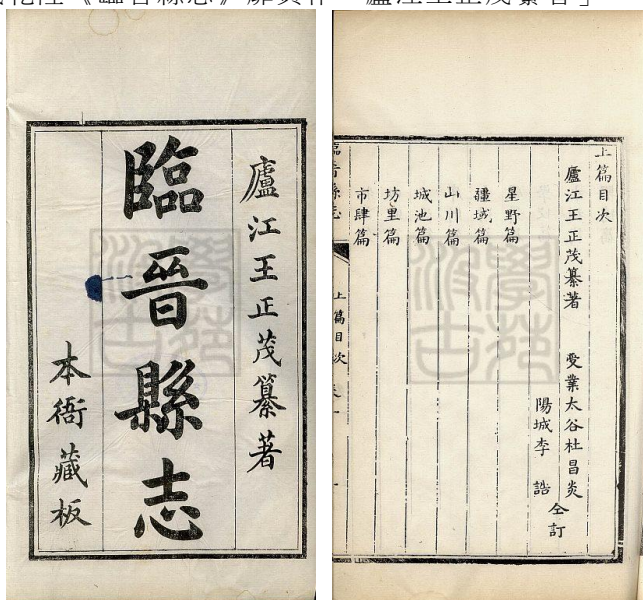 廬江王正茂纂著
臨晉縣志
本衙藏板
上篇目次
廬江王正茂纂著 受業太谷杜昌炎
陽城李 誥
仝訂
星野篇
疆域篇
山川篇
城池篇
坊里篇
市肆篇
臨晉縣志 上篇目次